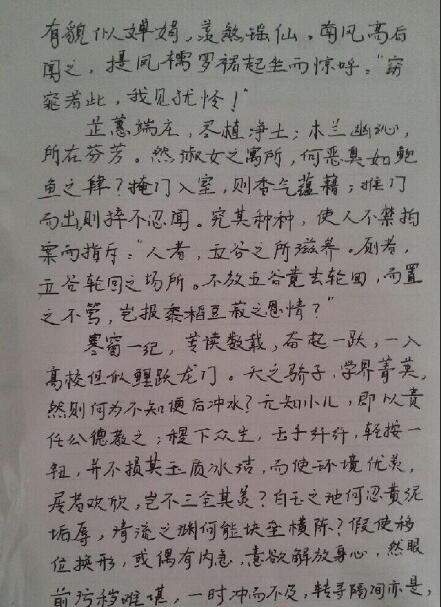 有貌似婵娟，羡煞瑶仙。南风高后
闻之，提凤襦罗裙起坐而惊呼："窈
窕若此，我见犹怜！"
芷蕙端庄，尽植净土；木兰幽沁，
所在芬芳。然淑女之寓所，何恶臭如鲍
鱼之肆？掩门入室，则香气蕴藉；推门
而出，则捽不忍闻。究其种种，使人不禁拍
案而指斥："人者，五谷之所滋养。厕者，
五谷轮回之场所。不放五谷黄去轮回，而置
之不管，岂报黍稻豆菽之恩情？"
寒窗一纪，苦读数载，奋起一跃，一入
高校但似鲤跃龙门。天之骄子，学界菁英，
然则何为不知便后冲水？无知小儿，即以责
任公德教之；稷下众生，玉手纤纤，轻按一
钮，并不损其玉质冰洁，而使环境优美，
居者欢欣，岂不三全其美？白玉之池何忍黄泥
垢厚，清流之渊何能块垒横陈？假使移
位换形，或偶有内急，意欲解放身心，然眼
前污秽难堪，一时冲而不及，转寻隔间亦是，